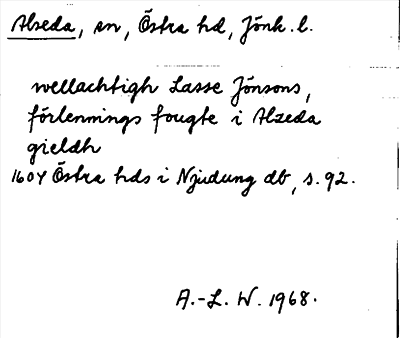 Alseda, sn, Östra hd, Jönk. l.
wellachtigh Lasse Jönsons,
förlennings fougte i Alzeda
gieldh
1604 Östra hds i Njudung db, s. 92.
A.-L. W. 1968.